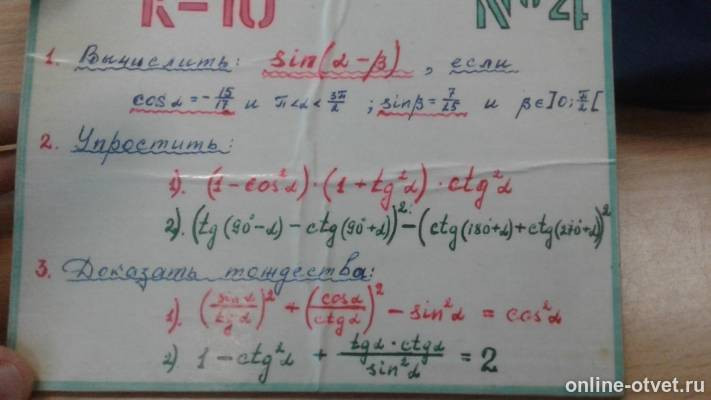 К-10 №4
1. Вычислить: sin(α-β), если
cosα = -15/17 и π<α<3π/2 ; sinβ = 7/25 и β∈]0; π/2[
2. Упростить:
1). (1-cos²α)·(1+tg²α)·ctg²α
2). (tg(90°-α) - ctg(90°+α))² - (ctg(180°+α)+ctg(270°+α))²
3. Доказать тождества:
1). (sinα/tgα)² + (cosα/ctgα)² - sin²α = cos²α
2) 1 - ctg²α + tgα·ctgα/sin²α = 2
online-otvet.ru